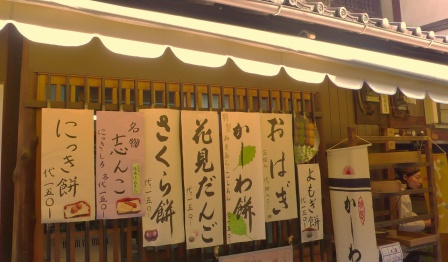 おはぎ
よもぎ餅
かしわ餅
花見だんご
さくら餅
代一五〇
名物
志んこ
にっき・しろ
各代一五〇
にっき餅
代一五〇
かしわ